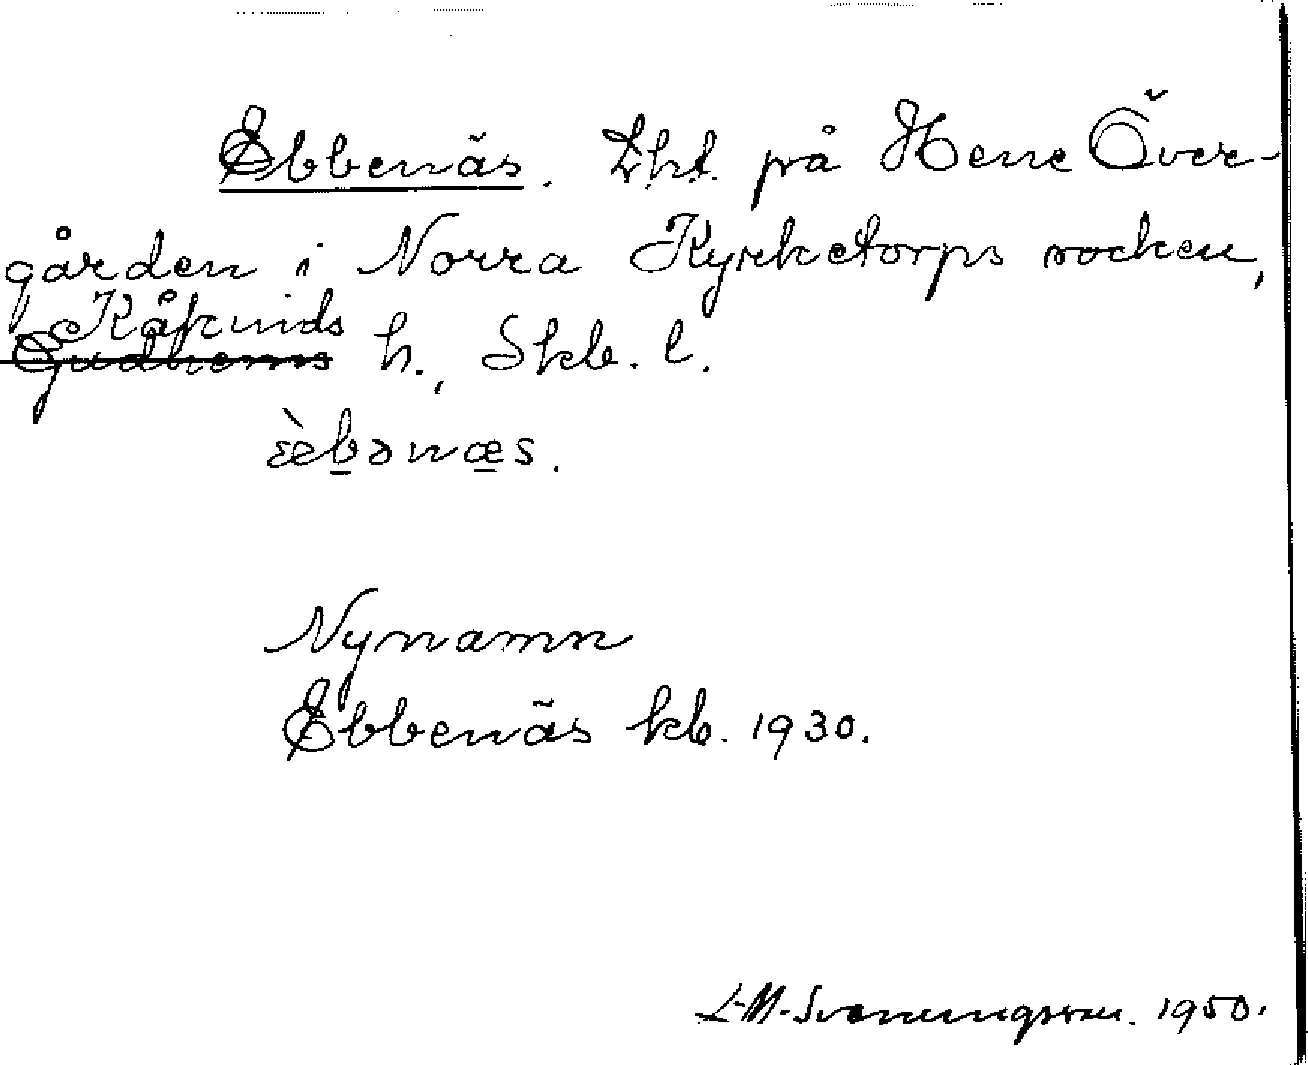 Ebbenäs. Lht. på Hene Över-
gården i Norra Kyrketorps socken,
Kåkinds
Gudhems h., Skb. l.
ɛ̀ebənæs.
Nynamn
Ebbenäs kb. 1930.
L-M. Svenungsson. 1950.